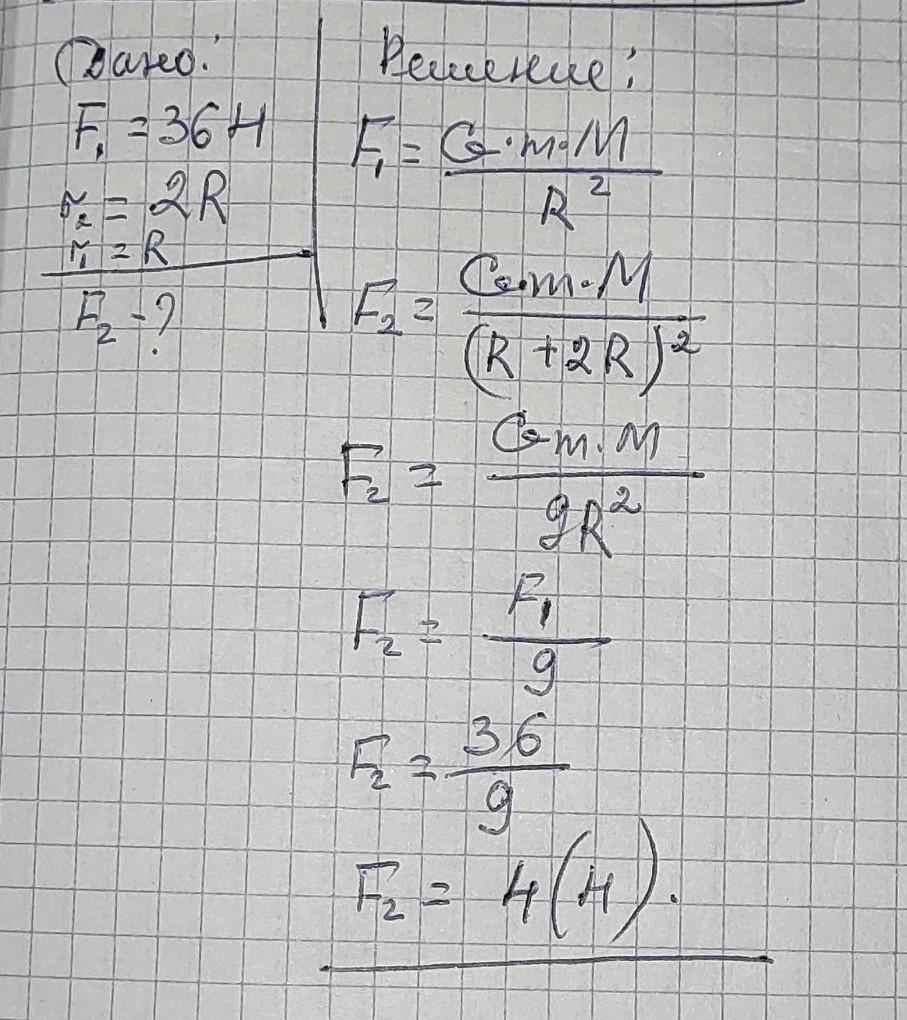 Дано:
F₁ = 36 Н
r₂ = 2R
r₁ = R
F₂ - ?
Решение:
F₁ = G·m·M / R²
F₂ = G·m·M / (R + 2R)²
F₂ = G·m·M / 9R²
F₂ = F₁ / 9
F₂ = 36 / 9
F₂ = 4 (Н).